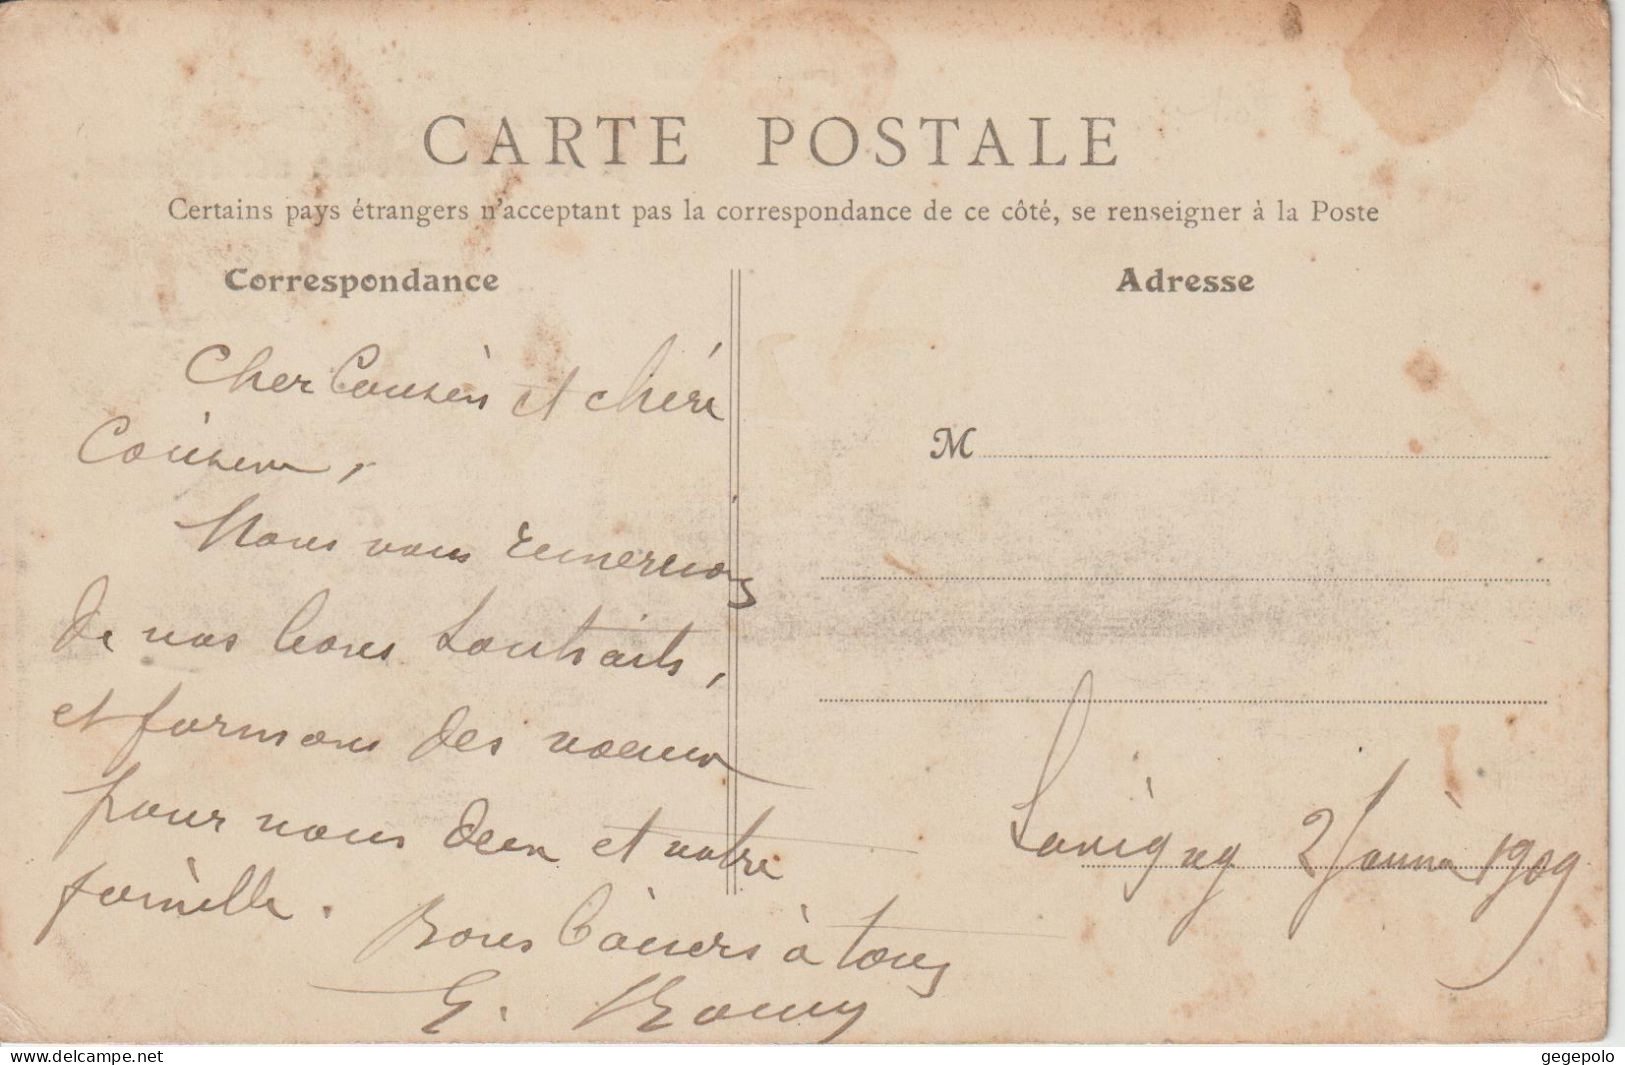 CARTE POSTALE
Certains pays étrangers n'acceptent pas la correspondance de ce côté, se renseigner à la Poste
Correspondance
Adresse
Cher Cousin et chère
Cousine,
M
Nous vous remercions
de vos bons souhaits,
et formons des voeux
pour vous deux et votre
famille.
Bons baisers à tous
2 Janvier 1909
E.
www.delcampe.net
gegepolo